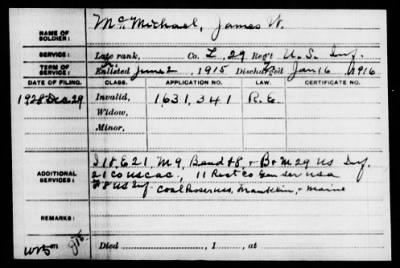 NAME OF SOLDIER: McMichael, James W.
SERVICE: Late rank, Co. L, 29 Reg't U.S. Inf.
TERM OF SERVICE: Enlisted June 2, 1915 Discharged Jan 16, 1916
DATE OF FILING. CLASS. APPLICATION NO. LAW. CERTIFICATE NO.
1928 Dec 29 Invalid, 1,631,341 R.E.
Widow,
Minor,
ADDITIONAL SERVICES:
E 21, M 9, Band & B + M 29 US Inf.
21 Co USCAC, 11 Rect Co Gen Ser USA
US Inf. Coal Franklin, + Maine
REMARKS:
Died , 1 , at